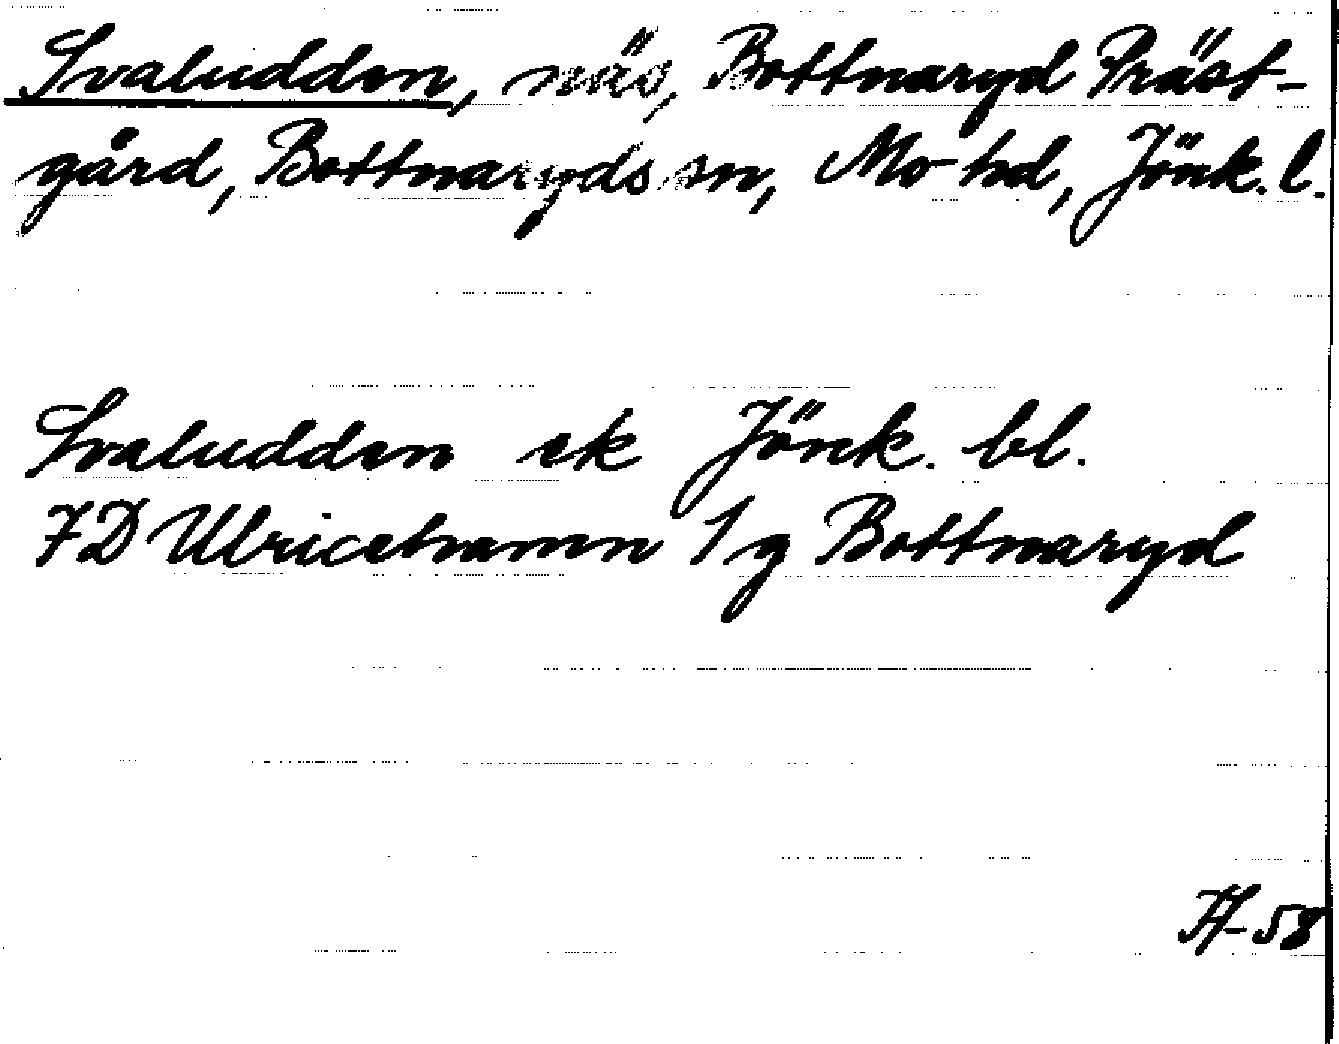 Svaludden, näs, Bottnaryd Präst-
gård, Bottnaryds sn, Mo hd, Jönk. l.
Svaludden ek Jönk. bl.
7D Ulricehamn 1g Bottnaryd
58